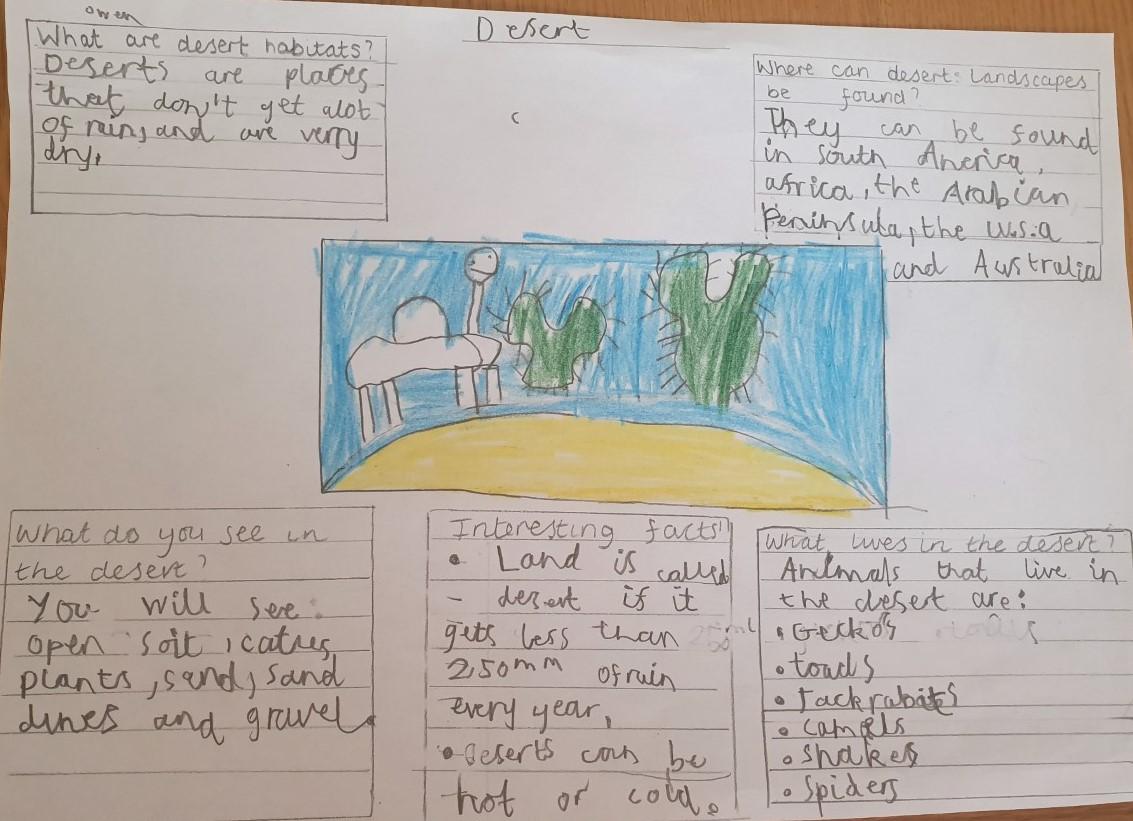 owen
Desert
What are desert habitats?
Deserts are places
that don't get alot
of rain, and are verry
dry,
Where can desert: Landscapes
be found?
They can be found
in south America,
africa, the Arabian
Peninsula, the u.s.a
and Australia
What do you see in
the desert?
You will see:
open soil, catus
plants, sand, sand
dunes and gravel.
Interesting facts!
• Land is called
- desert if it
gets less than
250mm of rain
every year,
• deserts can be
hot or cold.
What lives in the desert?
Animals that live in
the desert are:
• Geckos
• toads
• Jackrabits
• camels
• snakes
• spiders